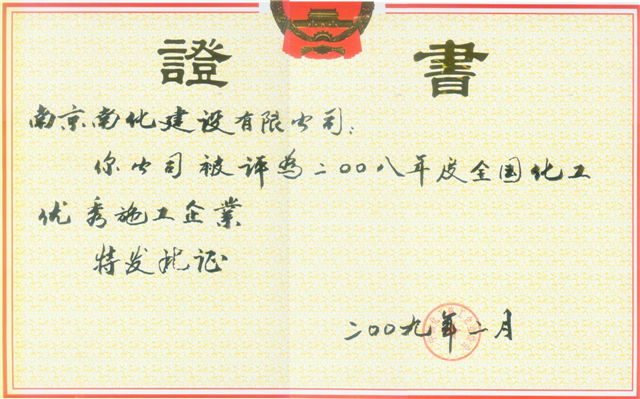 證 書
南京南化建设有限公司:
你公司被评为二〇〇八年度全国化工
优秀施工企業
特发此证
二〇〇九年二月